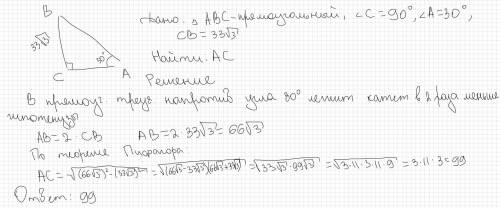 B
33√3
C
30°
A
Дано: △ABC-прямоугольный, ∠C=90°, ∠A=30°,
CB=33√3
Найти: AC
Решение
В прямоуг. треуг напротив угла 30° лежит катет в 2 раза меньше
гипотенузы
AB=2·CB AB=2·33√3=66√3
По теореме Пифагора:
AC=√((66√3)²-(33√3)²)=√((66√3-33√3)(66√3+33√3))=√(33√3·99√3)=√(3·11·3·11·9)=3·11·3=99
Ответ: 99